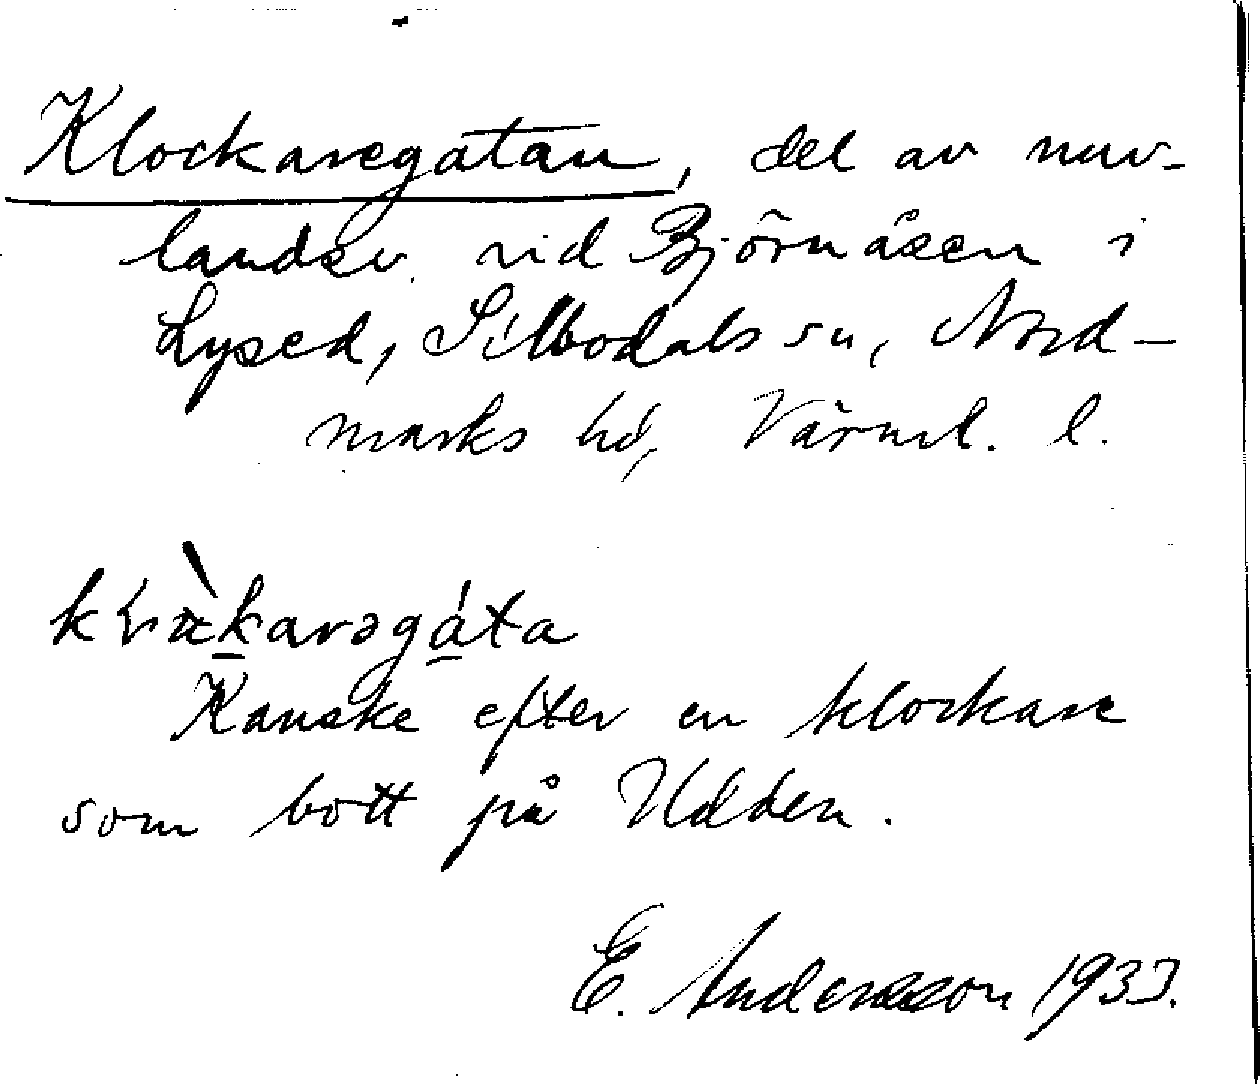 Klockaregatan, del av nuv-
landsv. vid Björnåsen i
Lysed, Silbodals sn, Nord-
marks hd, Värml. l.
Kanske efter en klockare
som bott på Udden.
E. Andersson 1933.